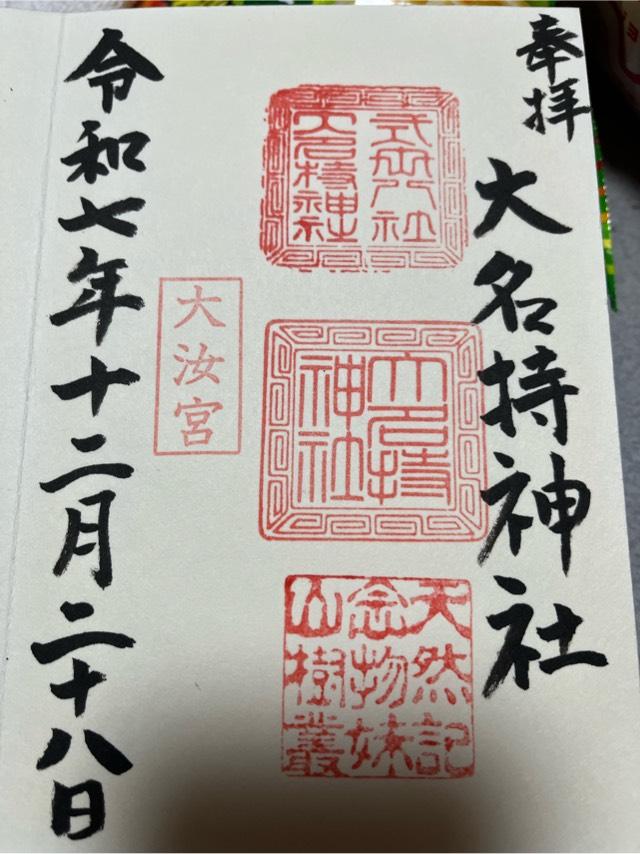 奉拝
大名持神社
式内大社
大名持神社
大名持
神社
天然記
念物妹
山樹叢
大汝宮
令和七年十二月二十八日